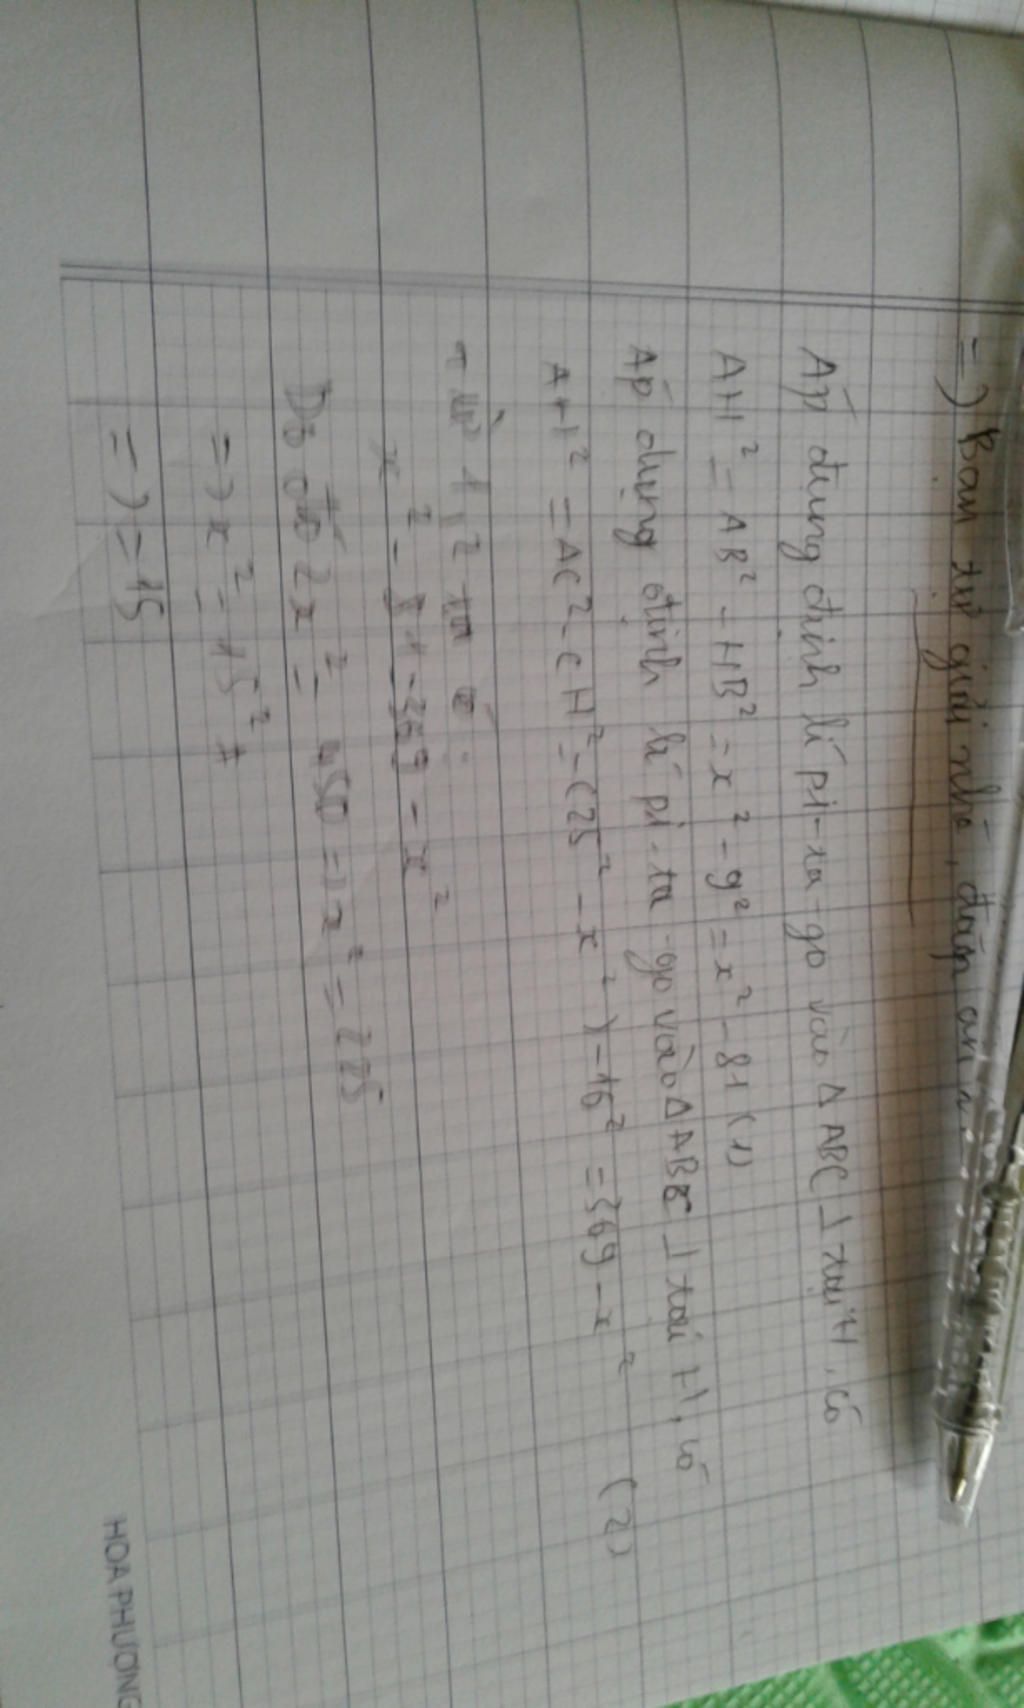 =) Bạn tự giải nhé, đáp án
Áp dung định lí pi-ta-go vào Δ ABC ⊥ tại H, có
AH² = AB² - HB² = x² - 9² = x² - 81 (1)
Áp dụng định lí pi-ta-go vào Δ ABC ⊥ tại H, có
AH² = AC² - CH² = (25² - x²) - 16² = 369 - x² (2)
từ 1, 2 ta có:
x² - 81 = 369 - x²
Do đó 2x² = 450 =) x² = 225
=) x² = 15²
=) = 15
HOA PHƯỢNG